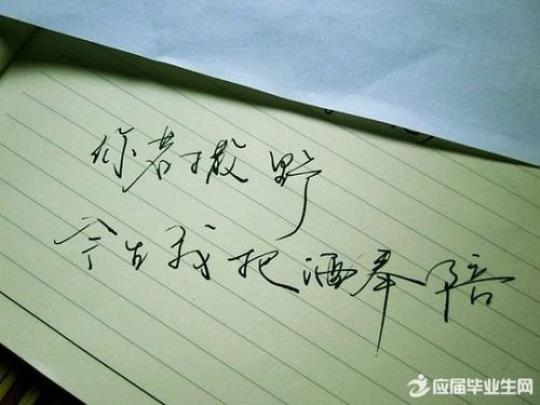 你若撒野
今生我把酒奉陪
应届毕业生网